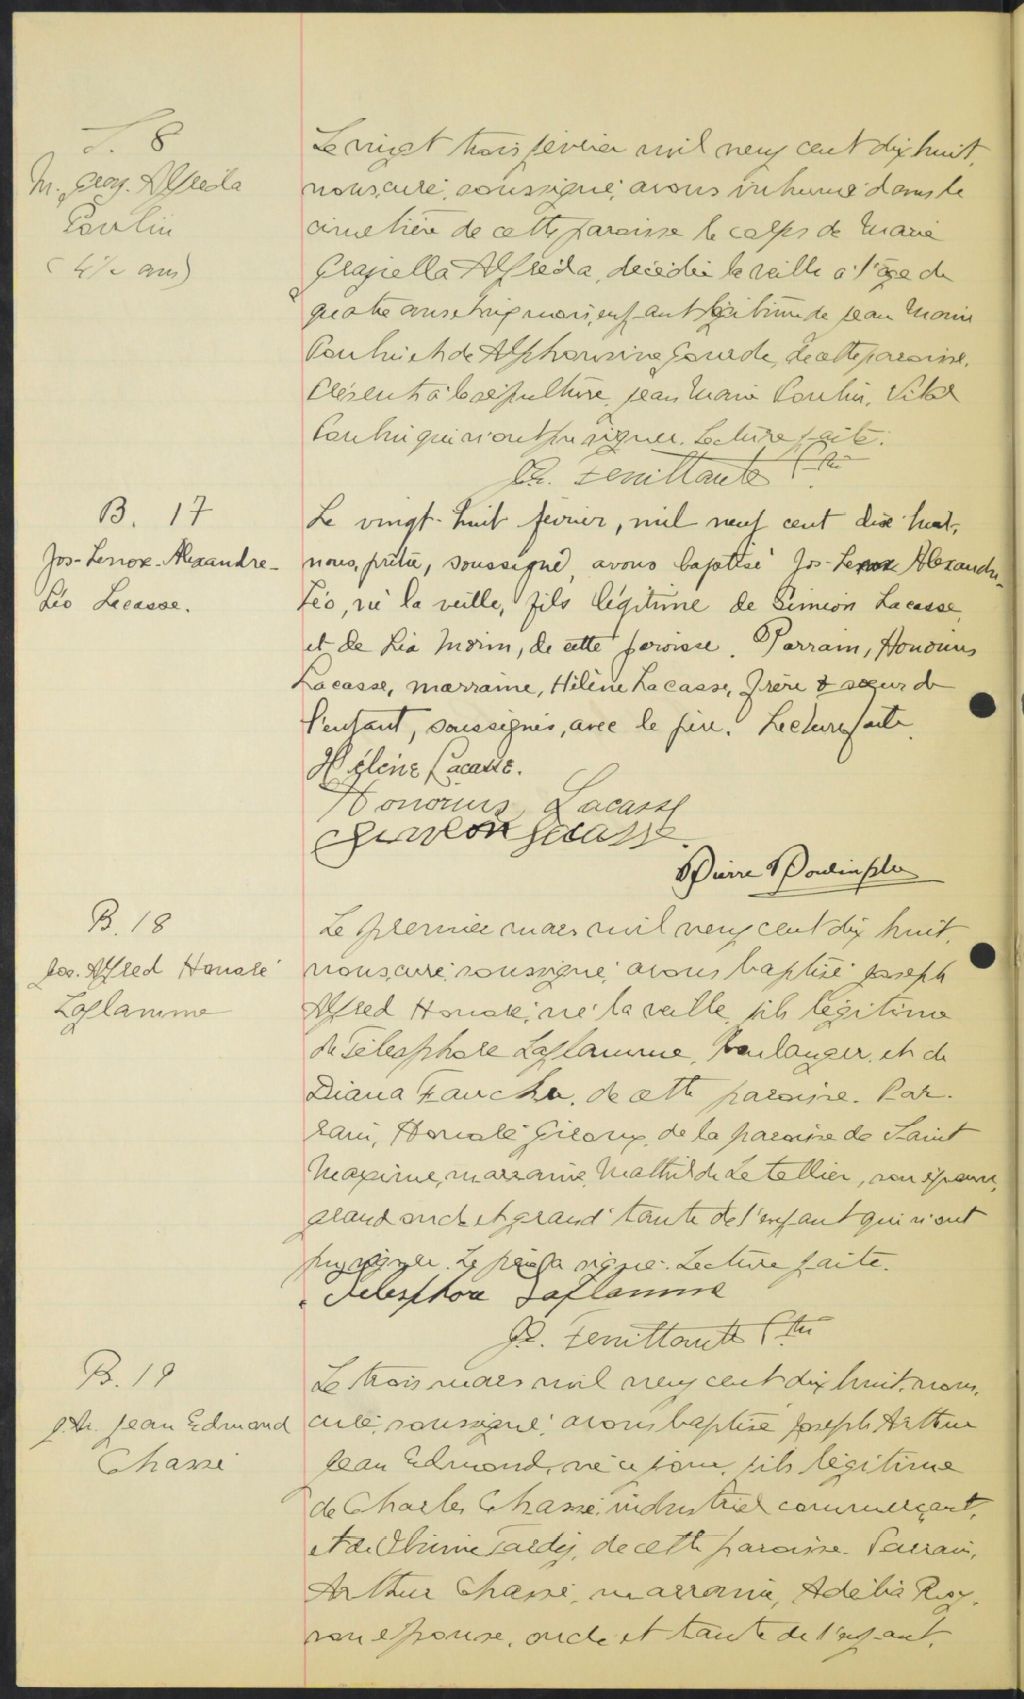 S. 8
M. Graz. Alfréda
Poulin
(4½ ans)
Le vingt trois février mil neuf cent dix huit,
nous, curé, soussigné, avons inhumé dans le
cimetière de cette paroisse le corps de Marie
Graziella Alfréda, décédée la veille à l'âge de
quatre ans et cinq mois, enfant légitime de Jean Marie
Poulin et de Alphonsine Gourde, de cette paroisse.
Présents à la sépulture, Jean Marie Poulin, Vital
Poulin qui n'ont pu signer. Lecture faite.
Ptre
B. 17
Jos-Lenox-Alexandre-
Léo Lacasse.
Le vingt-huit février, mil neuf cent dix huit,
nous, prêtre, soussigné, avons baptisé Jos-Lenox Alexandre-
Léo, né la veille, fils légitime de Siméon Lacasse,
et de Léa Morin, de cette paroisse. Parrain, Honorius
Lacasse, marraine, Hélène Lacasse, frère & soeur de
l'enfant, soussignés, avec le père. Lecture faite.
Hélène Lacasse.
Honorius Lacasse
Siméon Lacasse.
Pierre Poulin ptre
B. 18
Jos. Alfred Honoré
Laflamme
Le premier mars mil neuf cent dix huit,
nous, curé, soussigné, avons baptisé Joseph
Alfred Honoré, né la veille, fils légitime
de Télesphore Laflamme, boulanger, et de
Diana Faucher, de cette paroisse. Par-
rain, Honoré Giroux, de la paroisse de Saint
Maxime, marraine, Mathilde Letellier, son épouse,
grand oncle et grand'tante de l'enfant qui n'ont
pu signer. Le père a signé. Lecture faite.
Télesphore Laflamme
Ptre
B. 19
J. Ar. Jean Edmond
Chassé
Le trois mars mil neuf cent dix huit, nous,
curé, soussigné, avons baptisé Joseph Arthur
Jean Edmond, né ce jour, fils légitime
de Charles Chassé, industriel commerçant,
et de Tardif, de cette paroisse. Parrain,
Arthur Chassé, marraine, Adélia Roy,
son épouse, oncle et tante de l'enfant,